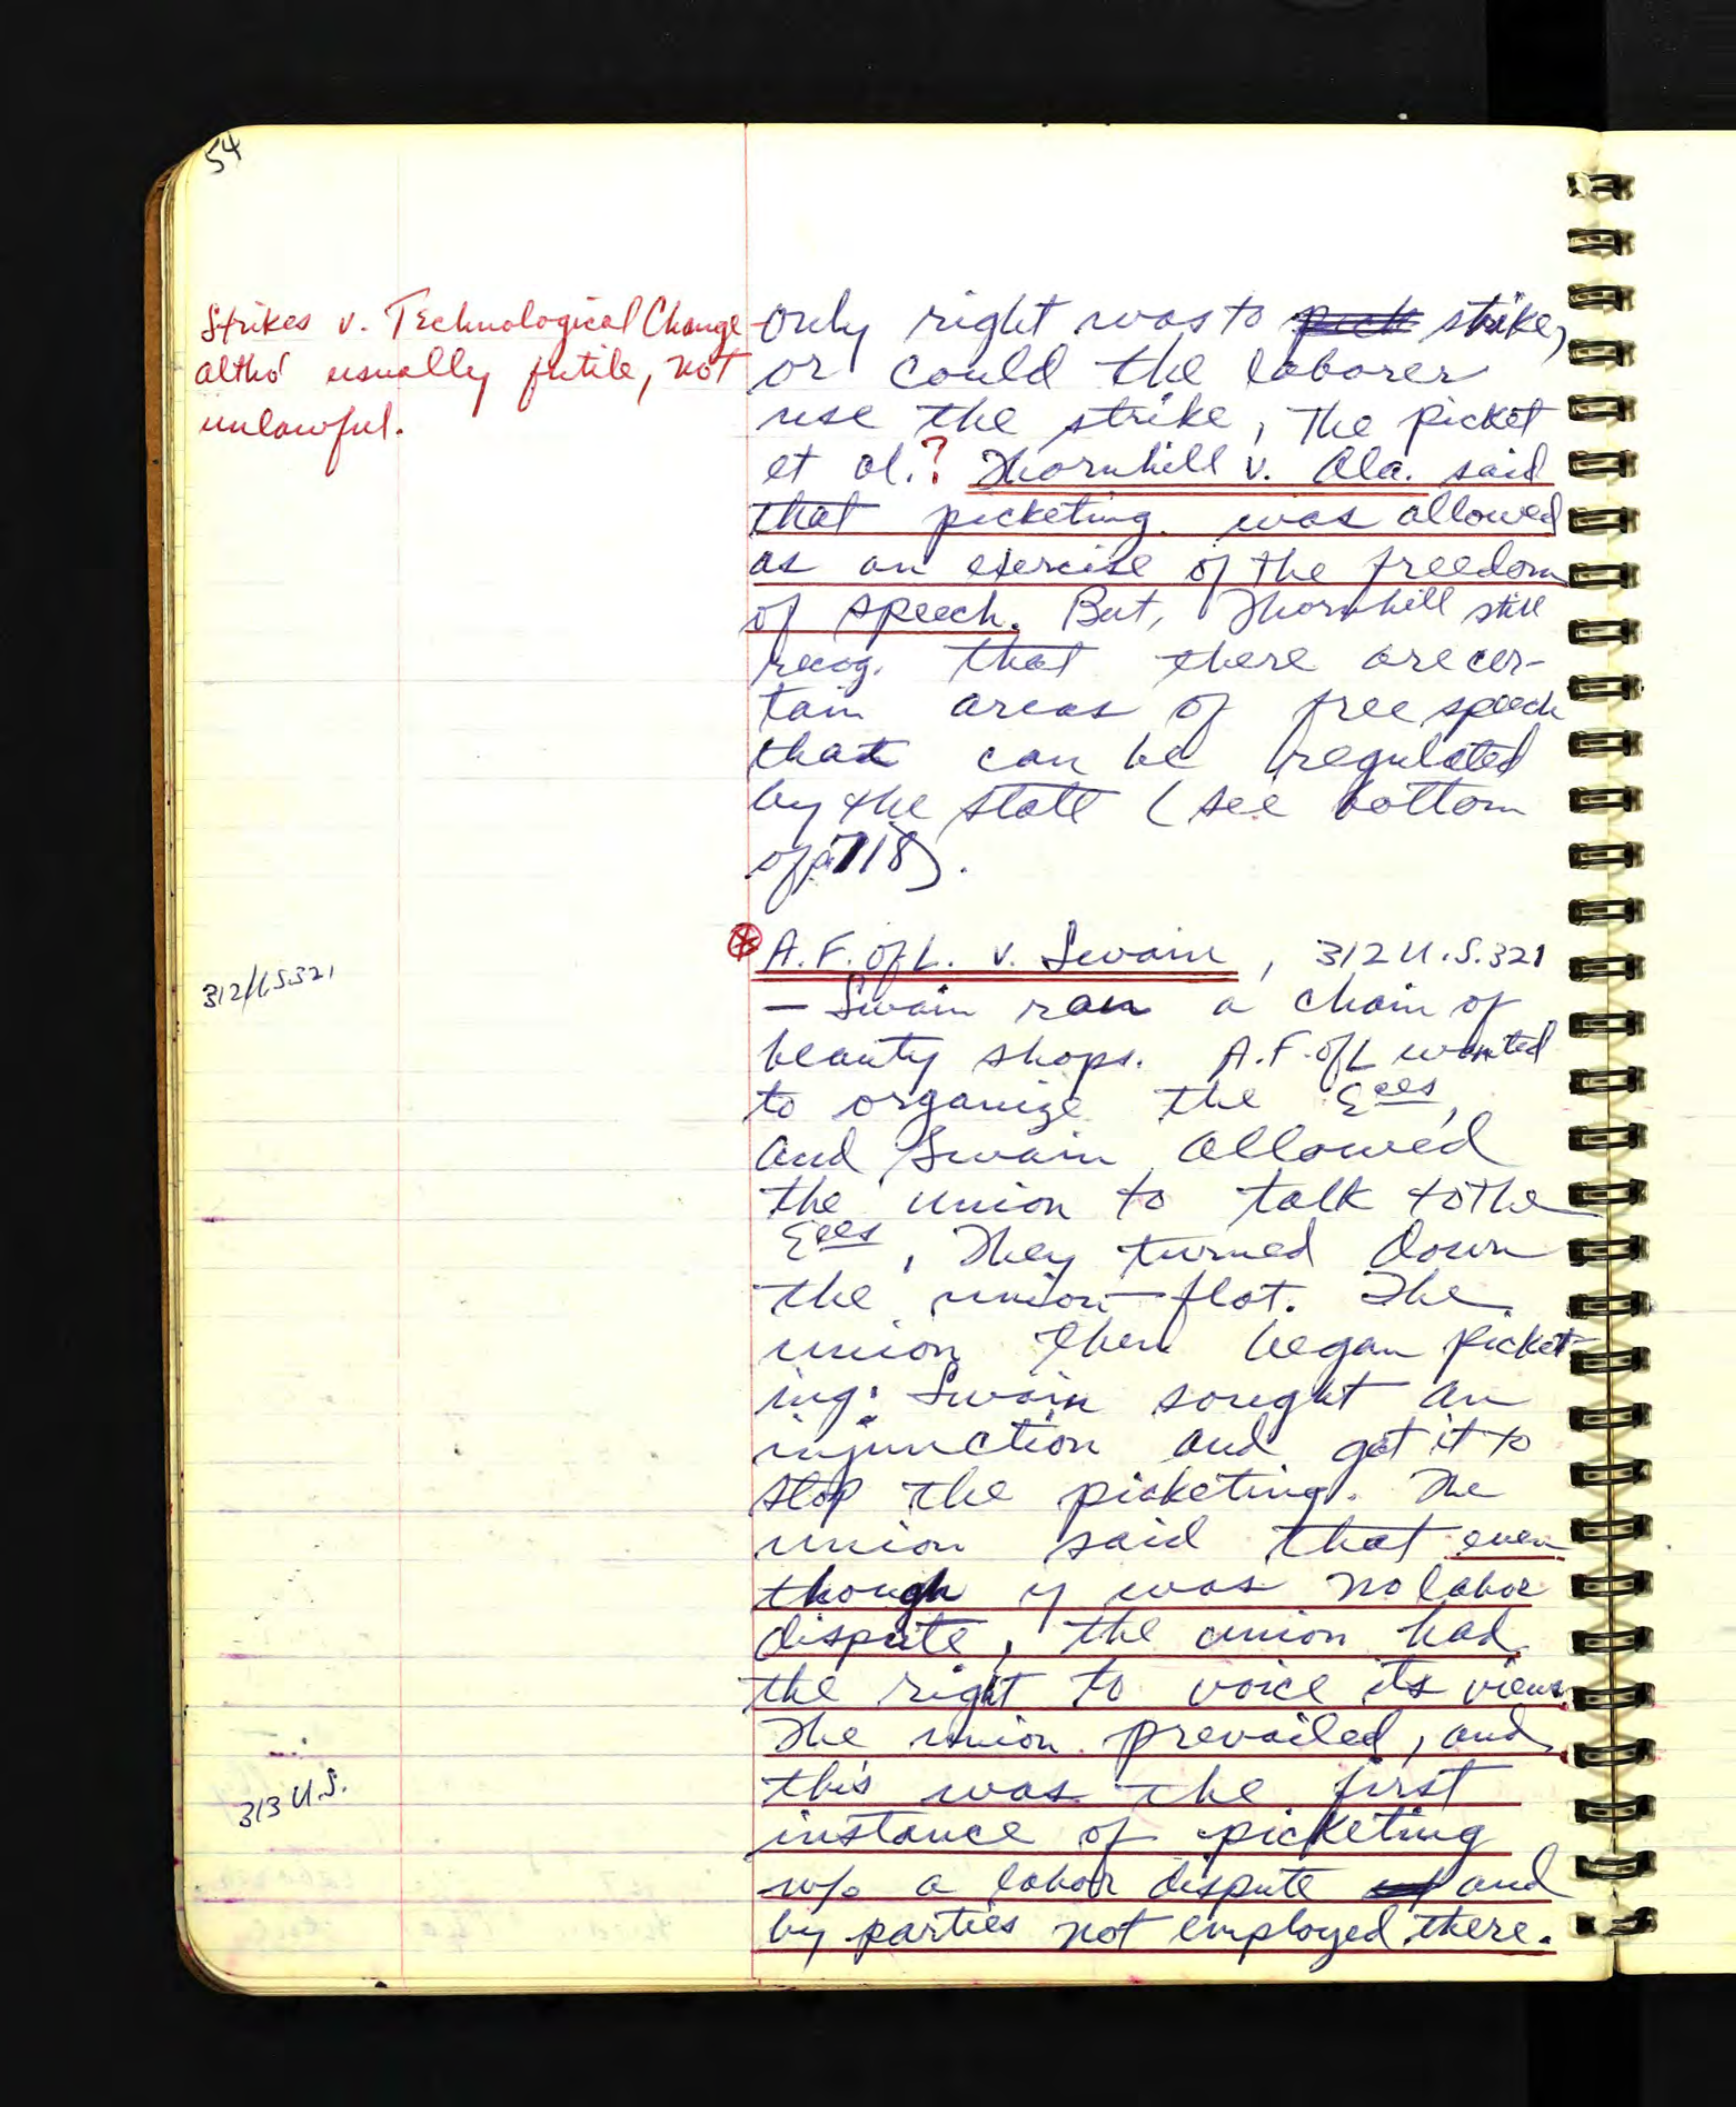 54
Strikes v. Technological Change
altho' usually futile, not
unlawful.
only right was to pick strike,
or could the laborer
use the strike, the picket
et al.? Thornhill v. Ala. said
that picketing was allowed
as an exercise of the freedom
of speech. But, Thornhill still
recog. that there are cer-
tain areas of free speech
that can be regulated
by the state (see bottom
of p. 718).
A.F. of L. v. Swain, 312 U.S. 321
312 U.S. 321
— Swain ran a chain of
beauty shops. A.F. of L wanted
to organize the Eees,
and Swain allowed
the union to talk to the
Eees, They turned down
the union flat. The
union then began picket-
ing. Swain sought an
injunction and got it to
stop the picketing. The
union said that even
though y was no labor
dispute, the union had
the right to voice its views.
The union prevailed, and
this was the first
313 U.S.
instance of picketing
w/o a labor dispute and
by parties not employed there.